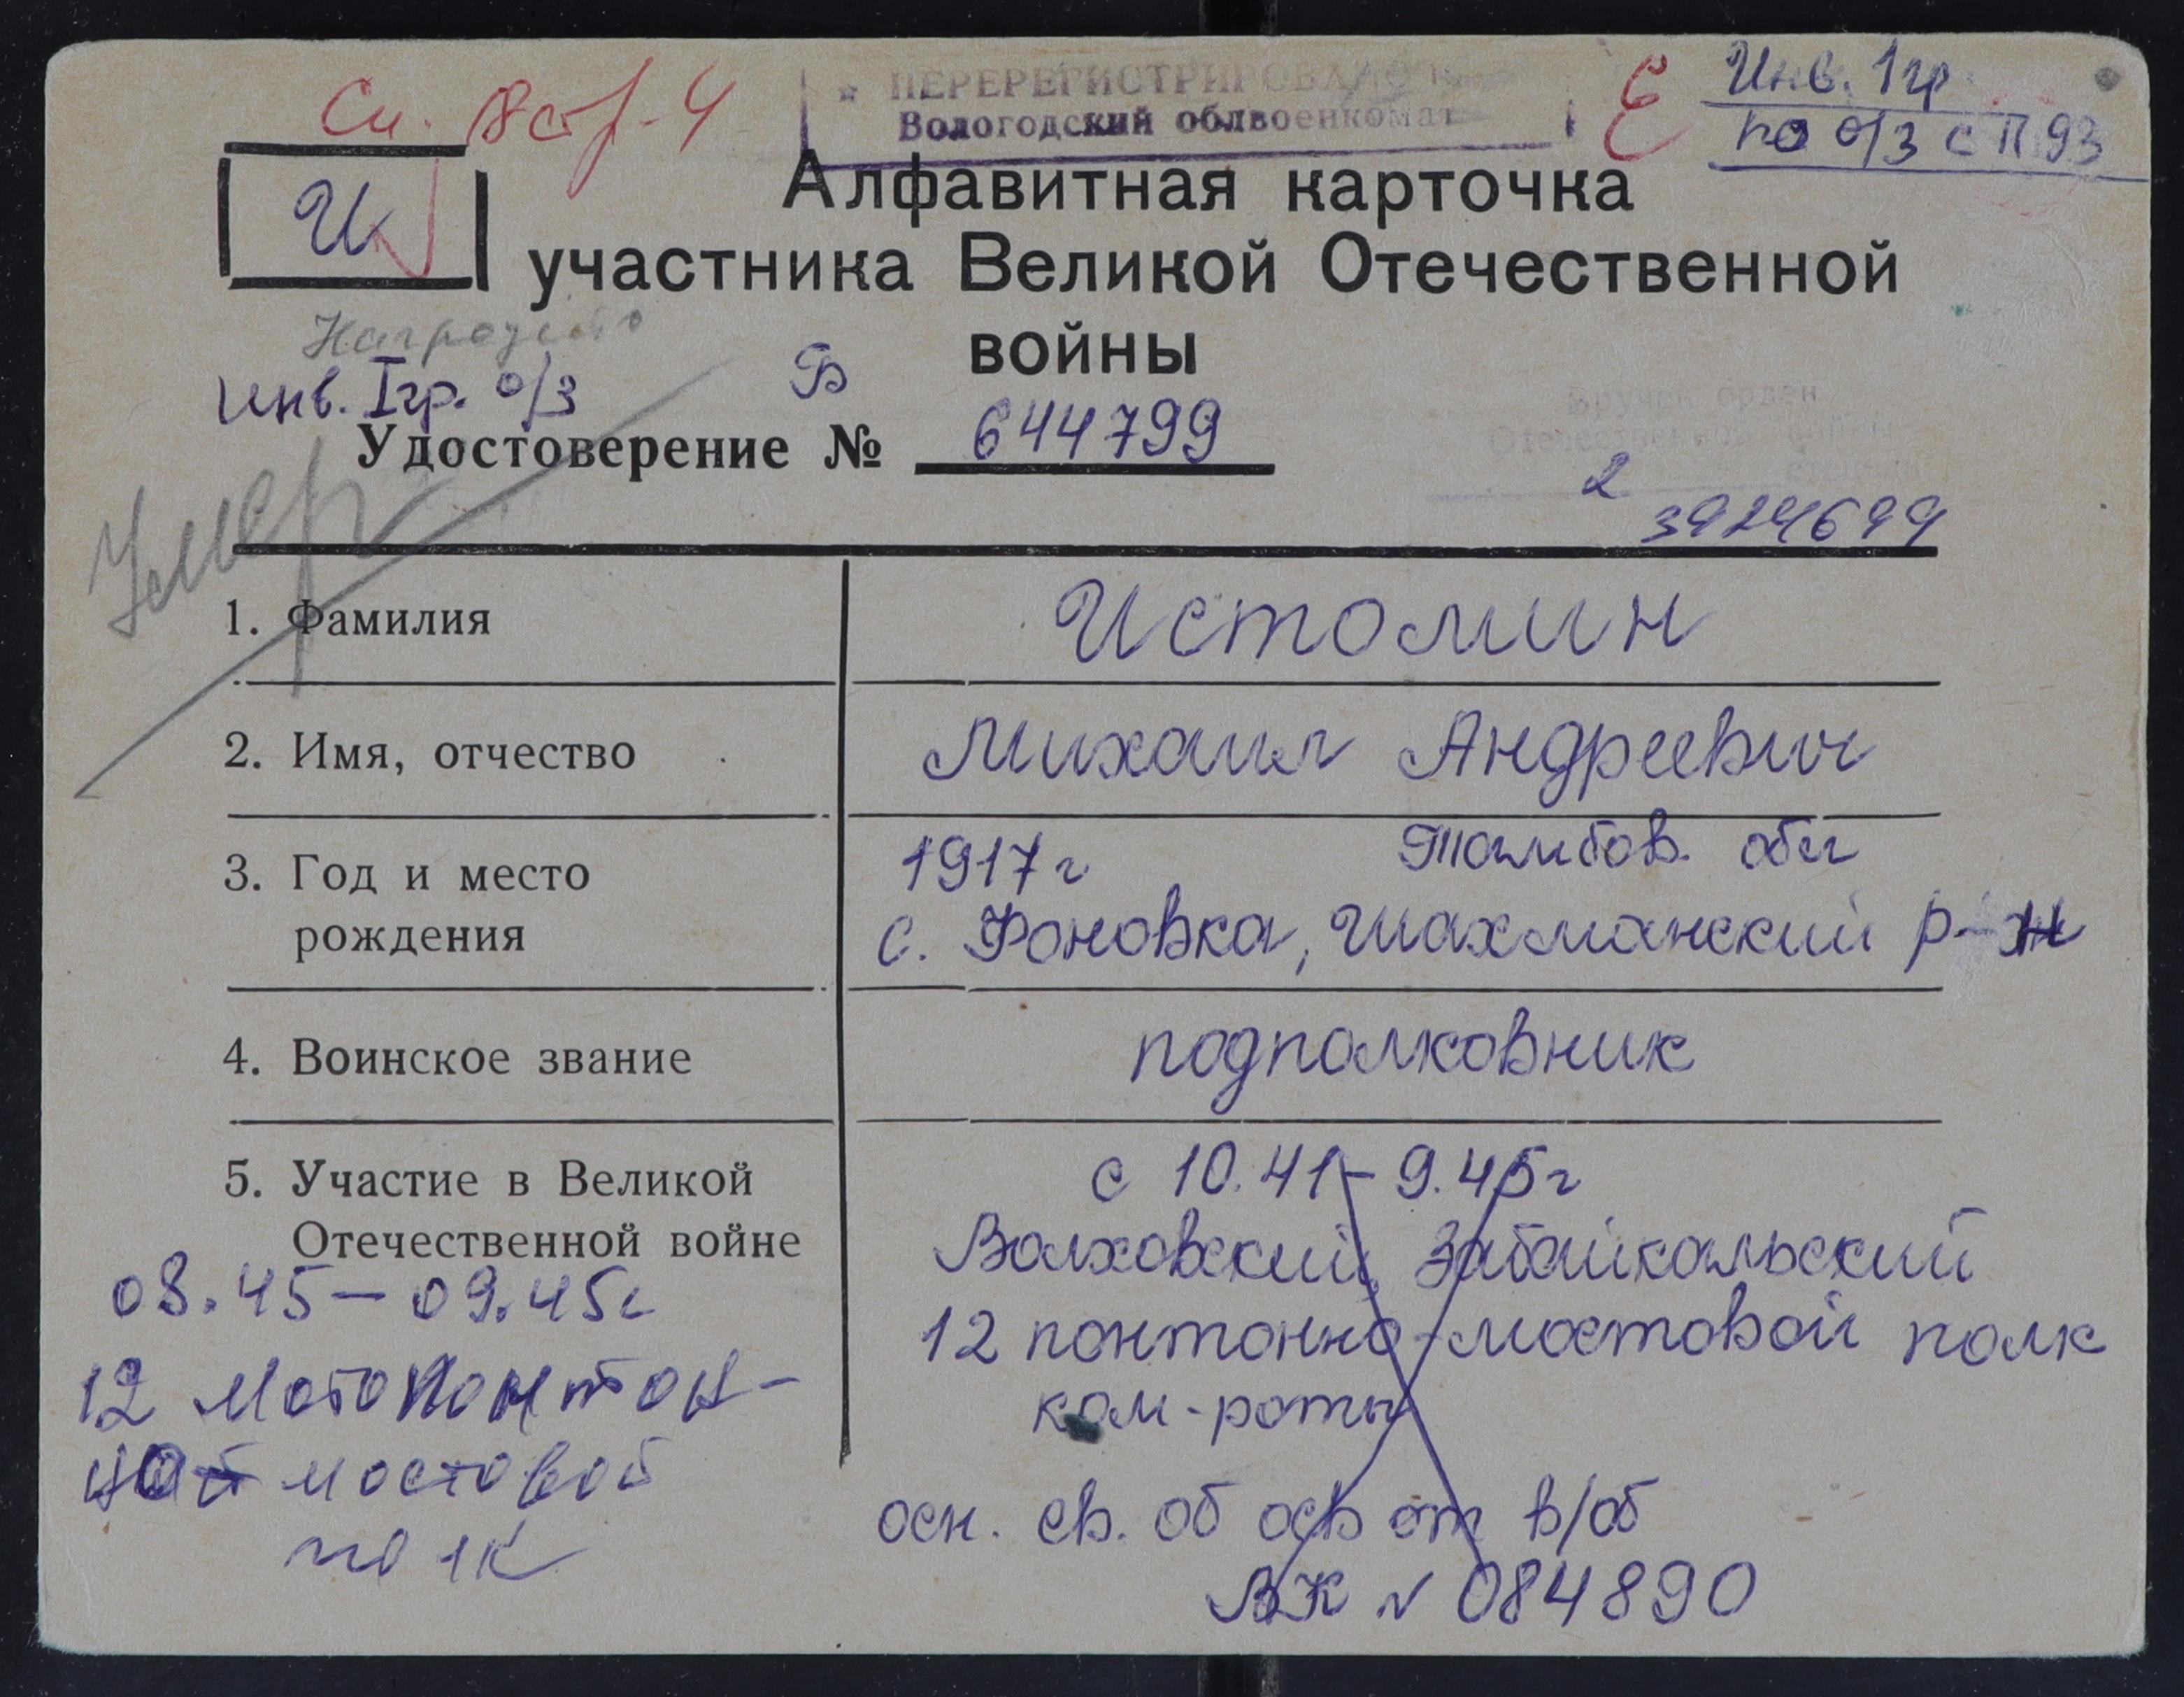 ★ ПЕРЕРЕГИСТРИРОВАНО
Вологодский облвоенкомат
Инв. 1 гр.
по о/з с П 93
И
Алфавитная карточка
участника Великой Отечественной
войны
Инв. I гр. о/з
Б
Удостоверение № 644799
Вручен орден
Отечественной войны
2 степени
3924699
Умер
1. Фамилия Истомин
2. Имя, отчество Михаил Андреевич
3. Год и место рождения 1917 г Тамбов. обл
с. Фоновка, Шахманский р-н
4. Воинское звание подполковник
5. Участие в Великой Отечественной войне с 10.41 - 9.45г
Волховский, Забайкальский
12 понтонно-мостовой полк
ком-роты
осн. св. об осв от в/об
ВК № 084890
08.45 - 09.45г
12 мотопонтон-
ный мостовой
полк